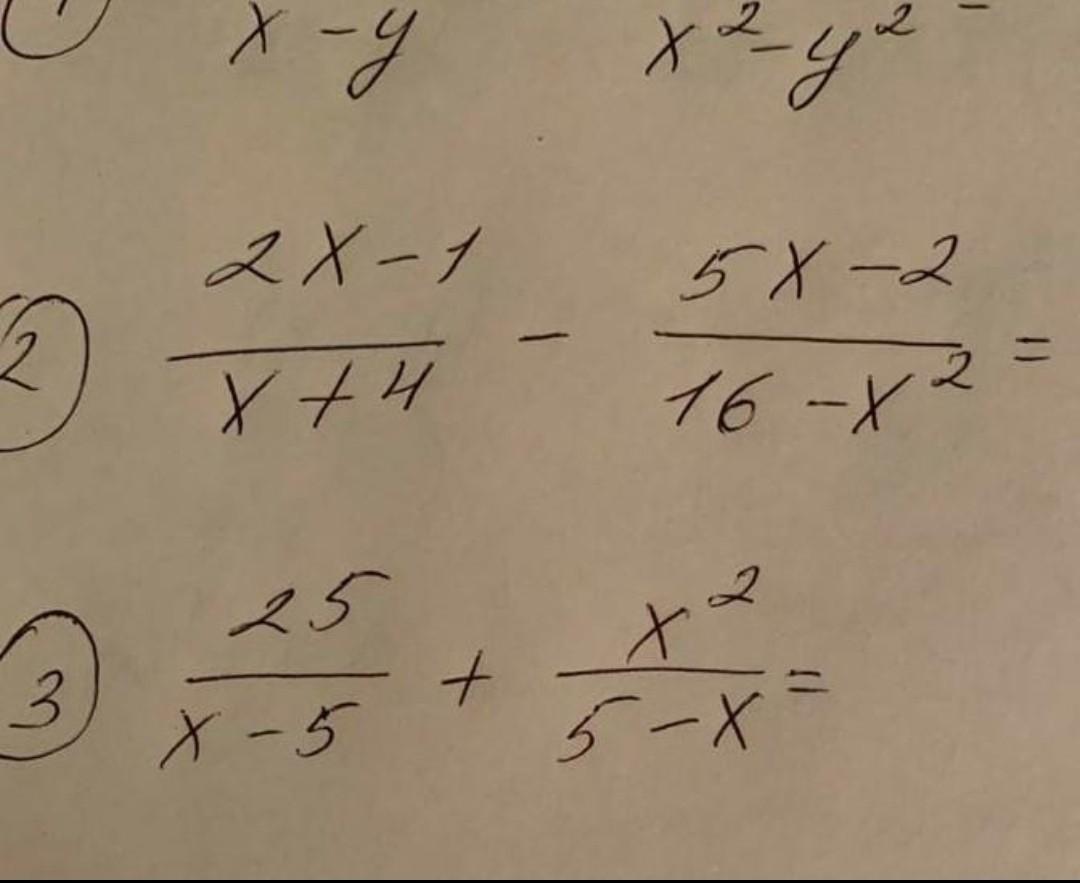 1 x - y x² - y² -
2 2x - 1 / x + 4 - 5x - 2 / 16 - x² =
3 25 / x - 5 + x² / 5 - x =